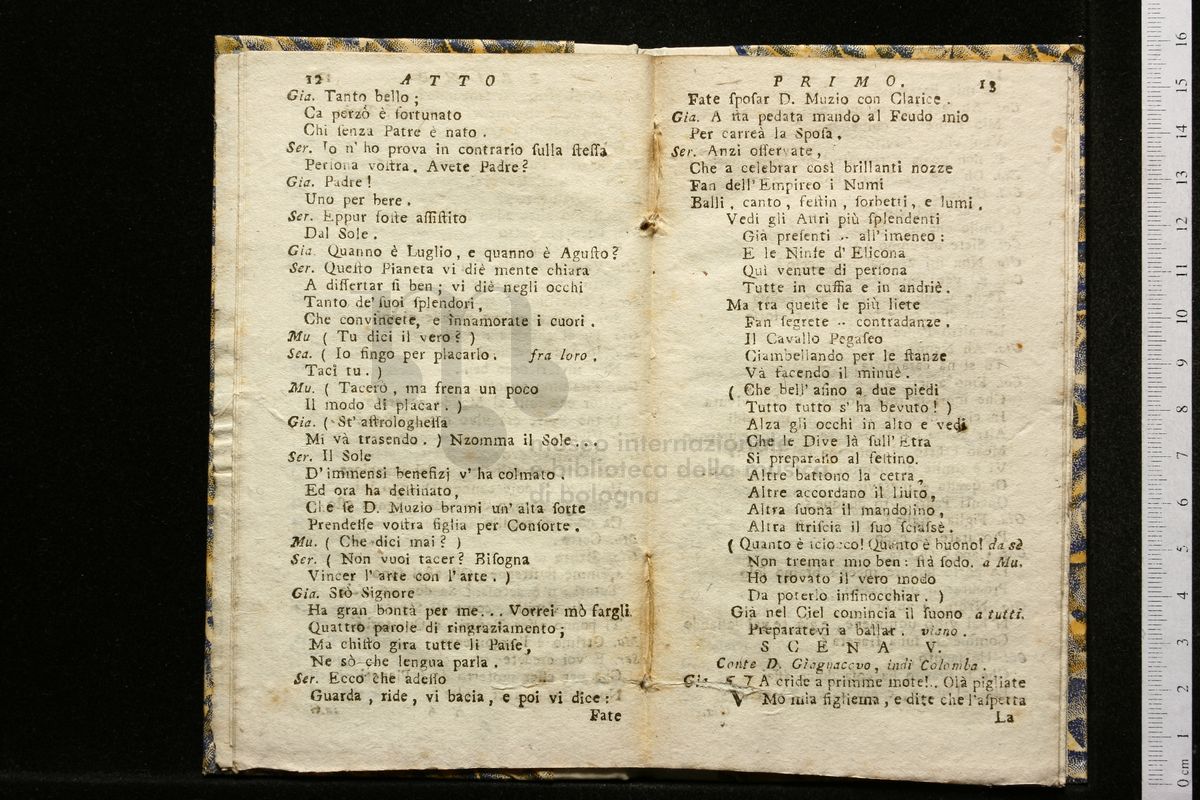 12 ATTO
Gia. Tanto bello ;
Ca perzò è fortunato
Chi ſenza Patre è nato .
Ser. Io n' ho prova in contrario ſulla ſteſſa
Perſona voſtra . Avete Padre ?
Gia. Padre !
Uno per bere .
Ser. Eppur foſte aſſiſtito
Dal Sole .
Gia. Quanno è Luglio , e quanno è Aguſto ?
Ser. Queſto Pianeta vi diè mente chiara
A diſſertar ſì ben ; vi diè negli occhi
Tanto de' ſuoi ſplendori ,
Che convincete, e innamorate i cuori .
Mu ( Tu dici il vero ? )
Sea. ( Io fingo per placarlo . fra loro .
Taci tu . )
Mu. ( Tacerò , ma frena un poco
Il modo di placar . )
Gia. ( St' aſtrologheſſa
Mi và traſendo . ) Nzomma il Sole . . .
Ser. Il Sole
D' immenſi benefizj v' ha colmato .
Ed ora ha deſtinato ,
Che ſe D. Muzio brami un' alta ſorte
Prendeſſe voſtra figlia per Conſorte .
Mu. ( Che dici mai ? )
Ser. ( Non vuoi tacer ? Biſogna
Vincer l' arte con l' arte . )
Gia. Stò Signore
Ha gran bontà per me . . . Vorrei mò fargli
Quattro parole di ringraziamento ;
Ma chiſto gira tutte li Paiſe ,
Ne sò che lengua parla .
Ser. Ecco che adeſſo
Guarda , ride , vi bacia , e poi vi dice :
Fate
PRIMO. 13
Fate ſpoſar D. Muzio con Clarice .
Gia. A ſta pedata mando al Feudo mio
Per carreà la Spoſa .
Ser. Anzi oſſervate ,
Che a celebrar così brillanti nozze
Fan dell' Empireo i Numi
Balli , canto , feſtin , ſorbetti , e lumi .
Vedi gli Aſtri più ſplendenti
Già preſenti .. all' imeneo :
E le Ninfe d' Elicona
Quì venute di perſona
Tutte in cuffia e in andriè .
Ma tra queſte le più liete
Fan ſegrete .. contradanze .
Il Cavallo Pegaſeo
Ciambellando per le ſtanze
Và facendo il minuè .
( Che bell' aſino a due piedi
Tutto tutto s' ha bevuto ! )
Alza gli occhi in alto e vedi
Che le Dive là ſull' Etra
Si preparano al feſtino.
Altre battono la cetra ,
Altre accordano il liuto ,
Altra ſuona il mandolino ,
Altra ſtriſcia il ſuo ſciaſsè .
( Quanto è ſciocco! Quanto è buono! da sè
Non tremar mio ben : ſtà ſodo. a Mu.
Hò trovato il vero modo
Da poterlo infinocchiar . )
Già nel Ciel comincia il ſuono a tutti.
Preparatevi a ballar . viano .
SCENA V.
Conte D. Giagnacovo , indi Colomba .
Gia. V A cride a primme mote!.. Olà pigliate
Mo mia figliema , e dite che l'aſpetta
La
internazionale
biblioteca della musica
di bologna
0 cm 1 2 3 4 5 6 7 8 9 10 11 12 13 14 15 16